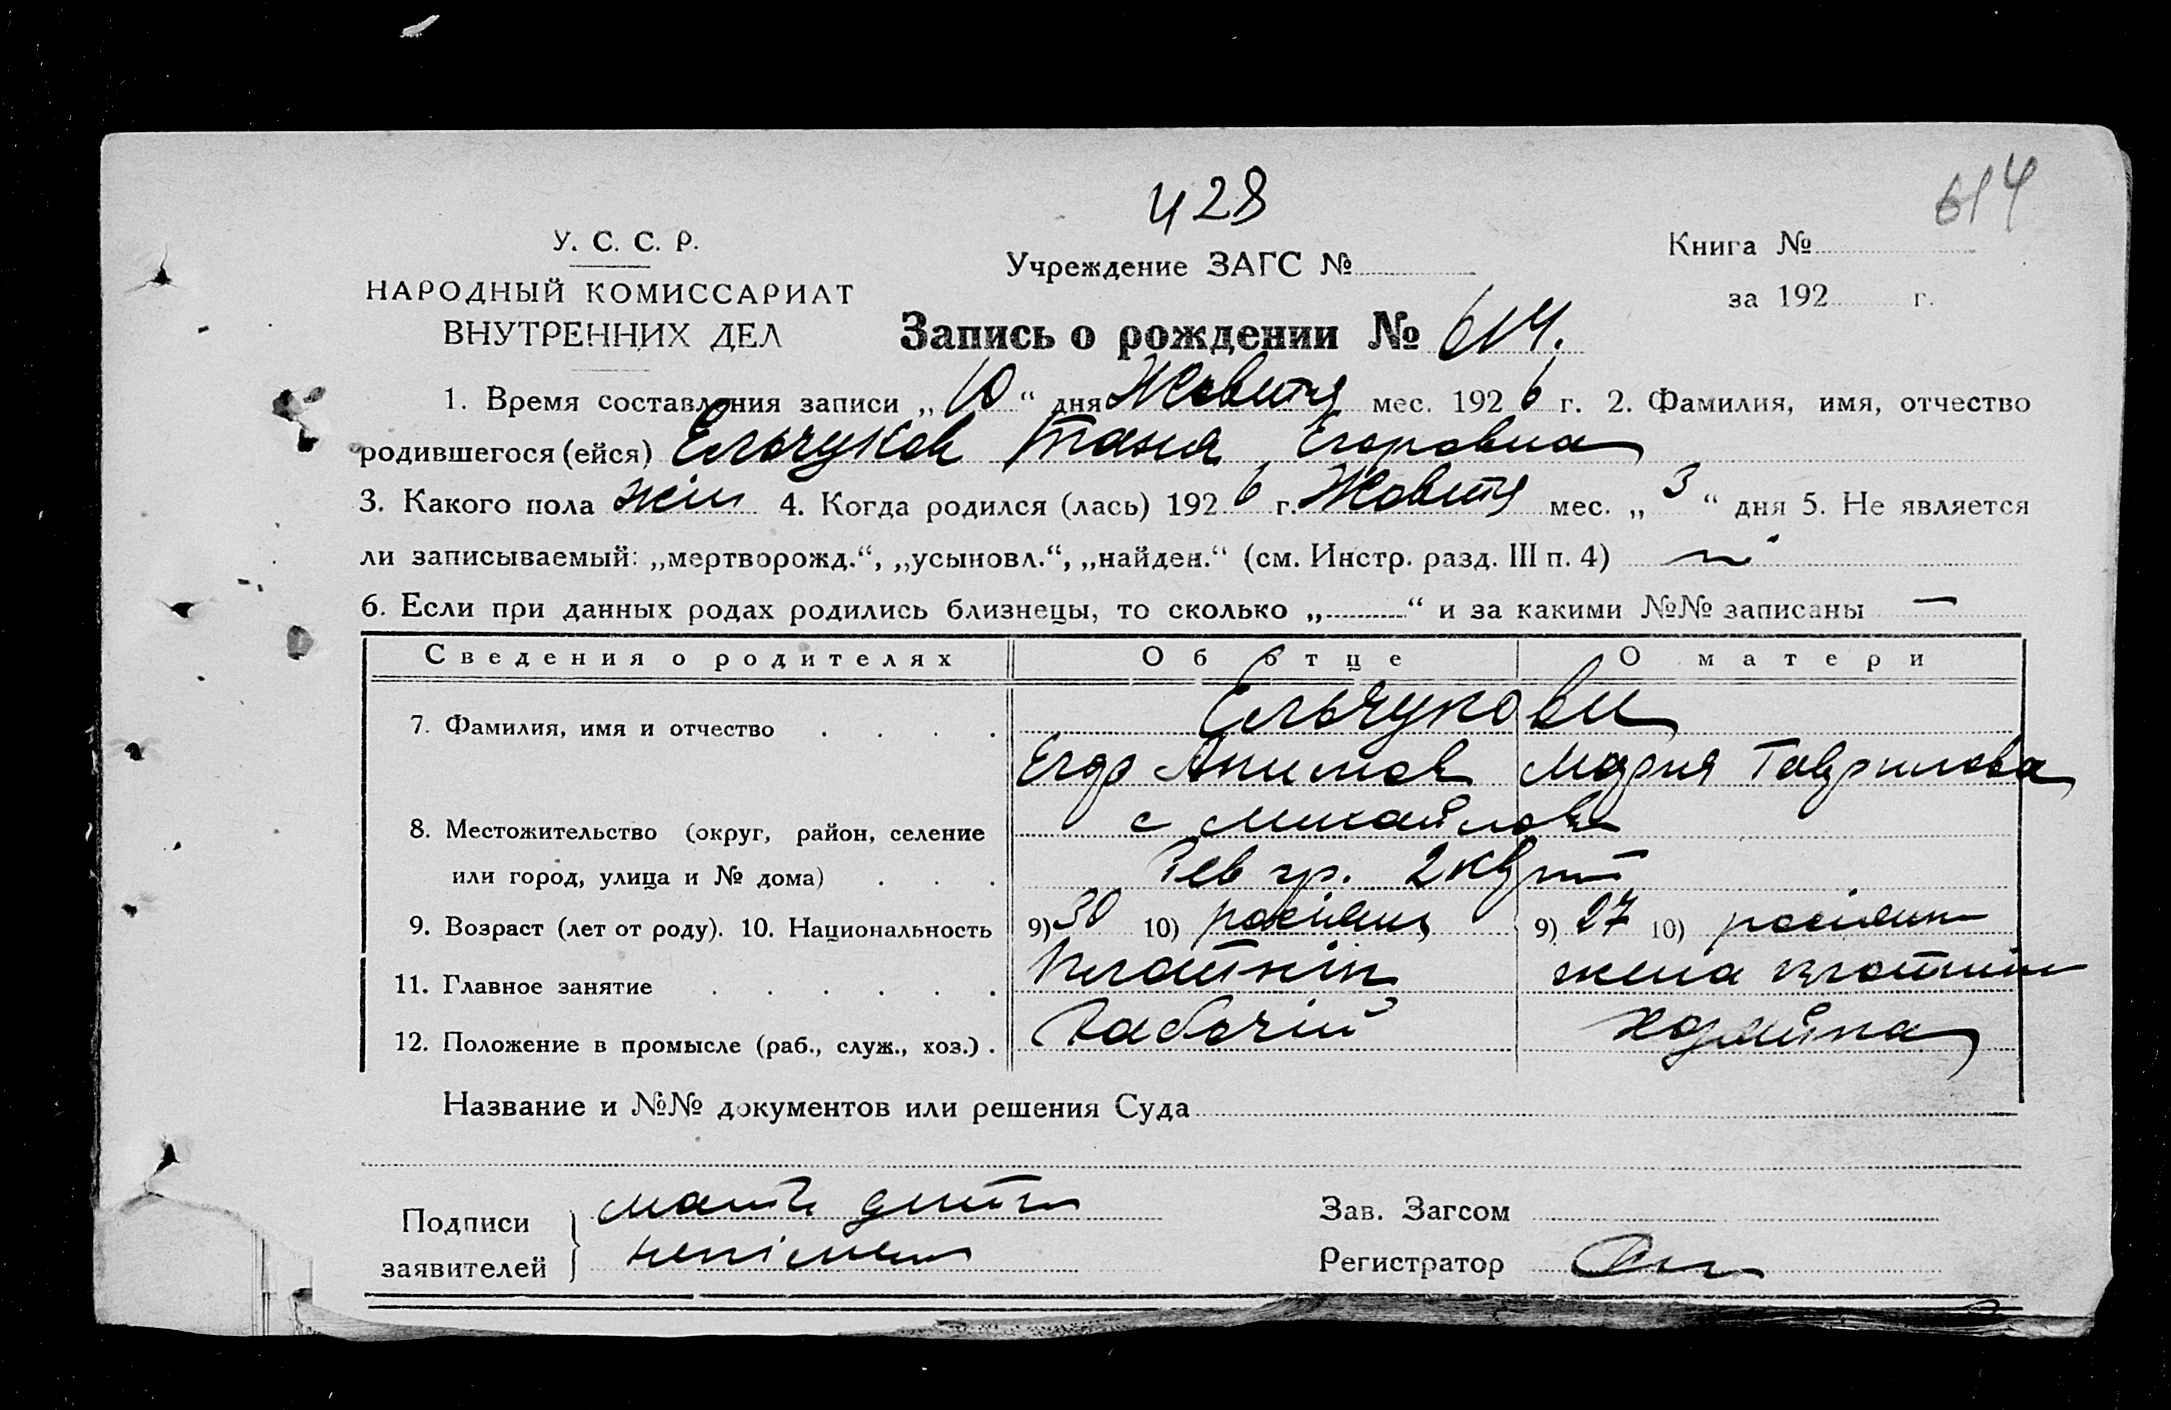 428
614
У. С. С. Р.
Учреждение ЗАГС №
Книга №
НАРОДНЫЙ КОМИССАРИАТ
за 192 г.
ВНУТРЕННИХ ДЕЛ
Запись о рождении № 614.
1. Время составления записи „10“ дня Жовтня мес. 1926 г. 2. Фамилия, имя, отчество
родившегося (ейся) Ельчуков Таня Егоровна
3. Какого пола жін 4. Когда родился (лась) 1926 г. Жовтня мес. „3“ дня 5. Не является
ли записываемый: „мертворожд.“, „усыновл.“, „найден.“ (см. Инстр. разд. III п. 4)
6. Если при данных родах родились близнецы, то сколько „ “ и за какими №№ записаны —
Сведения о родителях Об отце О матери
7. Фамилия, имя и отчество Ельчукови
Егор Акимов Мария Гаврилова
8. Местожительство (округ, район, селение с Михайловка
или город, улица и № дома) 2
9. Возраст (лет от роду). 10. Национальность 9) 30 10) росіянин 9) 27 10) росіянин
11. Главное занятие жена
12. Положение в промысле (раб., служ., хоз.) Рабочій хозяйка
Название и №№ документов или решения Суда
Подписи мать дитя
заявителей
Зав. Загсом
Регистратор